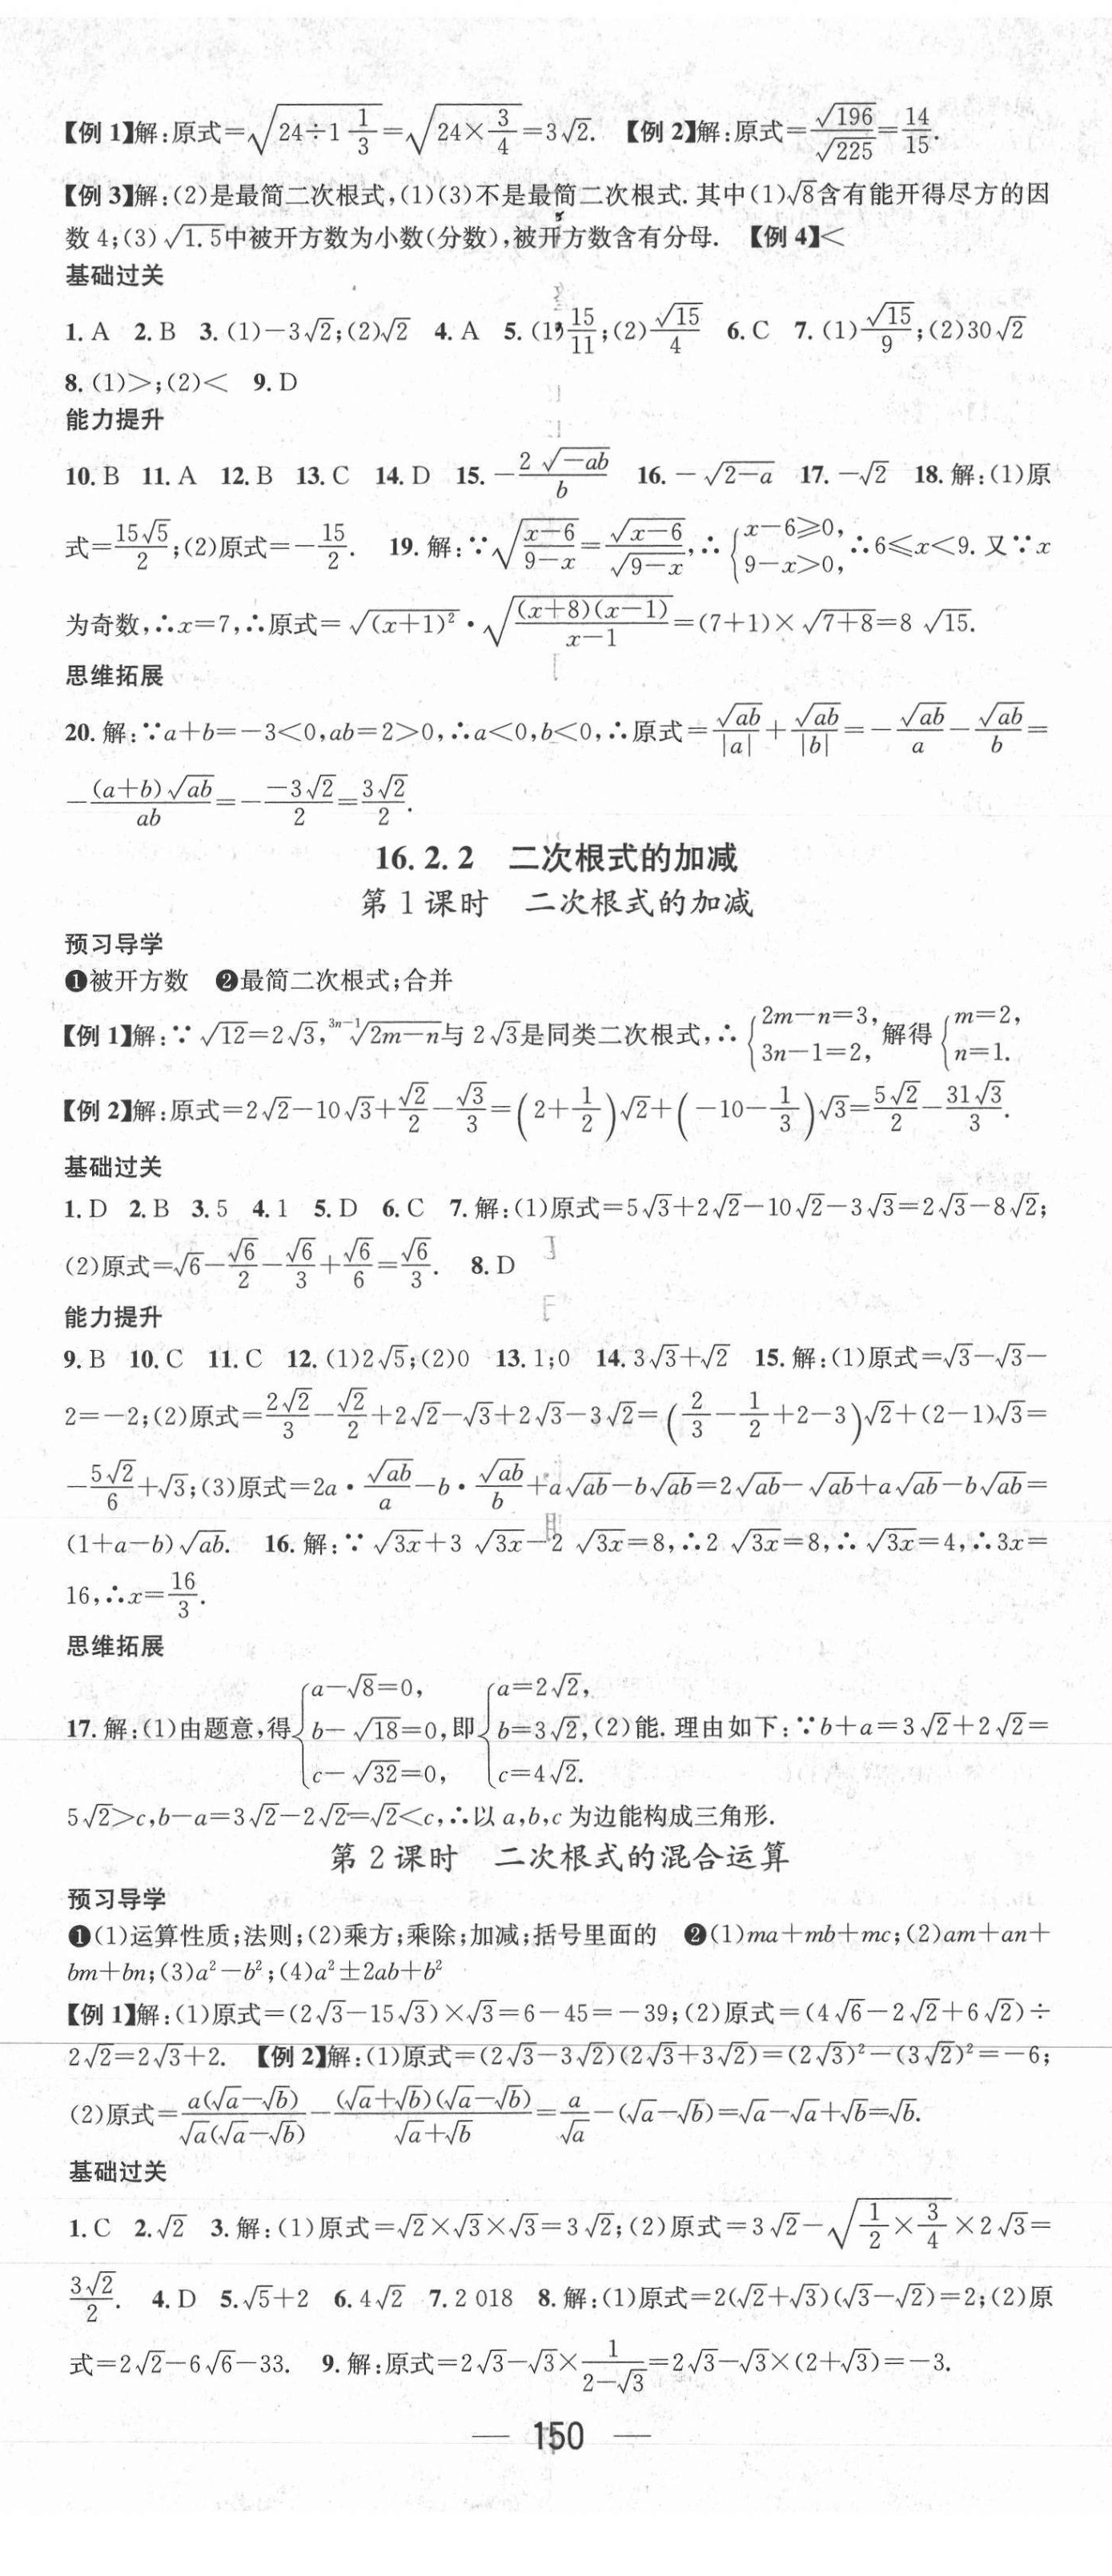 【例 1】解:原式=√(24÷1 1/3)=√(24×3/4)=3√2. 【例 2】解:原式=√196/√225=14/15.
【例 3】解:(2)是最简二次根式,(1)(3)不是最简二次根式. 其中(1)√8含有能开得尽方的因
数 4;(3)√1.5中被开方数为小数(分数),被开方数含有分母. 【例 4】<
基础过关
1. A 2. B 3. (1)-3√2;(2)√2 4. A 5. (1)15/11;(2)√15/4 6. C 7. (1)√15/9;(2)30√2
8. (1)>;(2)< 9. D
能力提升
10. B 11. A 12. B 13. C 14. D 15. -2√(-ab)/b 16. -√(2-a) 17. -√2 18. 解:(1)原
式=15√5/2;(2)原式=-15/2. 19. 解:∵√((x-6)/(9-x))=√(x-6)/√(9-x),∴{x-6≥0, 9-x>0,∴6≤x<9. 又∵x
为奇数,∴x=7,∴原式=√(x+1)²·√((x+8)(x-1)/(x-1))=(7+1)×√(7+8)=8√15.
思维拓展
20. 解:∵a+b=-3<0,ab=2>0,∴a<0,b<0,∴原式=√ab/|a|+√ab/|b|=-√ab/a-√ab/b=
-(a+b)√ab/ab=-(-3√2)/2=3√2/2.
16.2.2 二次根式的加减
第 1 课时 二次根式的加减
预习导学
❶被开方数 ❷最简二次根式;合并
【例 1】解:∵√12=2√3,³ⁿ⁻¹√(2m-n)与 2√3是同类二次根式,∴{2m-n=3, 3n-1=2,解得{m=2, n=1.
【例 2】解:原式=2√2-10√3+√2/2-√3/3=(2+1/2)√2+(-10-1/3)√3=5√2/2-31√3/3.
基础过关
1. D 2. B 3. 5 4. 1 5. D 6. C 7. 解:(1)原式=5√3+2√2-10√2-3√3=2√3-8√2;
(2)原式=√6-√6/2-√6/3+√6/6=√6/3. 8. D
能力提升
9. B 10. C 11. C 12. (1)2√5;(2)0 13. 1;0 14. 3√3+√2 15. 解:(1)原式=√3-√3-
2=-2;(2)原式=2√2/3-√2/2+2√2-√3+2√3-3√2=(2/3-1/2+2-3)√2+(2-1)√3=
-5√2/6+√3;(3)原式=2a·√ab/a-b·√ab/b+a√ab-b√ab=2√ab-√ab+a√ab-b√ab=
(1+a-b)√ab. 16. 解:∵√3x+3√3x-2√3x=8,∴2√3x=8,∴√3x=4,∴3x=
16,∴x=16/3.
思维拓展
17. 解:(1)由题意,得{a-√8=0, b-√18=0, c-√32=0,即{a=2√2, b=3√2, c=4√2.(2)能. 理由如下:∵b+a=3√2+2√2=
5√2>c,b-a=3√2-2√2=√2<c,∴以 a,b,c 为边能构成三角形.
第 2 课时 二次根式的混合运算
预习导学
❶(1)运算性质;法则;(2)乘方;乘除;加减;括号里面的 ❷(1)ma+mb+mc;(2)am+an+
bm+bn;(3)a²-b²;(4)a²±2ab+b²
【例 1】解:(1)原式=(2√3-15√3)×√3=6-45=-39;(2)原式=(4√6-2√2+6√2)÷
2√2=2√3+2. 【例 2】解:(1)原式=(2√3-3√2)(2√3+3√2)=(2√3)²-(3√2)²=-6;
(2)原式=a(√a-√b)/√a(√a-√b)-(√a+√b)(√a-√b)/(√a+√b)=a/√a-(√a-√b)=√a-√a+√b=√b.
基础过关
1. C 2. √2 3. 解:(1)原式=√2×√3×√3=3√2;(2)原式=3√2-√(1/2×3/4)×2√3=
3√2/2. 4. D 5. √5+2 6. 4√2 7. 2 018 8. 解:(1)原式=2(√2+√3)(√3-√2)=2;(2)原
式=2√2-6√6-33. 9. 解:原式=2√3-√3×1/(2-√3)=2√3-√3×(2+√3)=-3.
— 150 —